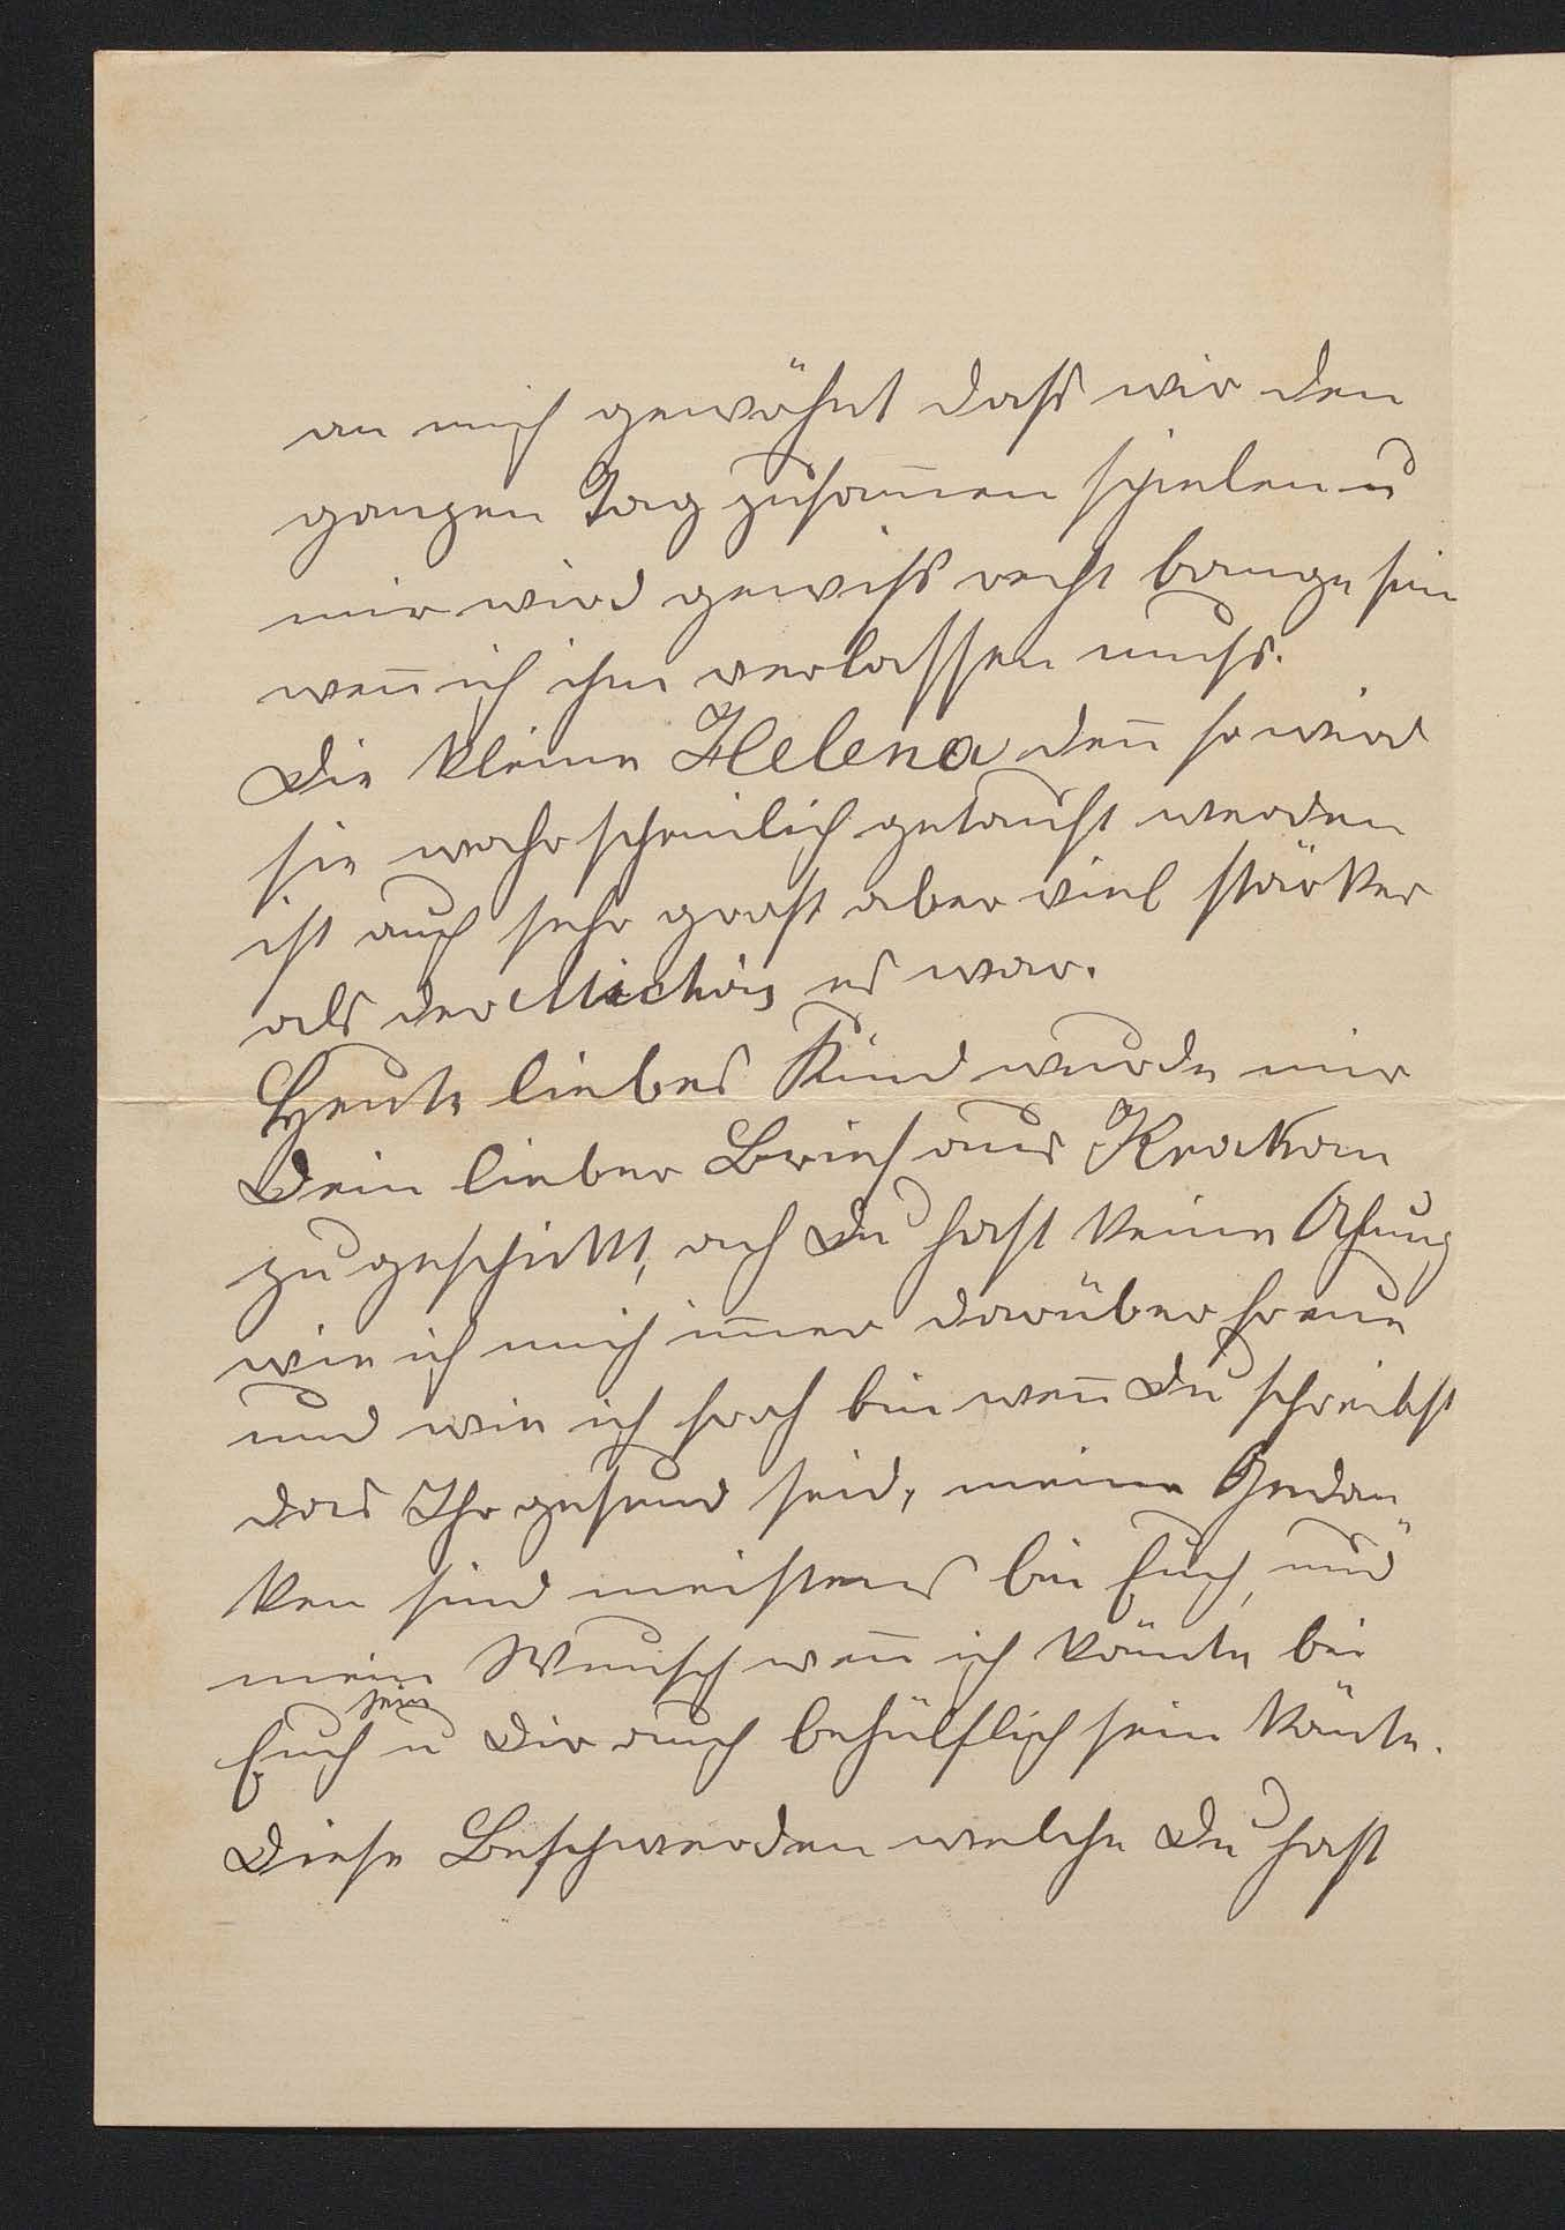 an mich gewöhnt dass wir den
ganzen Tag zusam̅en spielen u
mir wird gewiss recht bange sein
wen̅ ich ihm verlassen muss.
Die kleine Helena den̅ so wird
sie wahrscheinlich getauft werden
ist auch sehr gross aber viel stärker
als der es war.
Heute liebes Kind wurde mir
Dein lieber Brief aus Krakau
zugeschickt, ach Du hast keine Ahnung
wie ich mich im̅er darüber freue
und wie ich froh bin wen̅ Du schreibst
das Ihr gesund seid, meine Gedan„
ken sind meistens bei Euch, und
mein Wunsch wen̅ ich könnte bei
Euch sein u Dir auch behülflich sein könte.
Diese Beschwerden welche Du hast